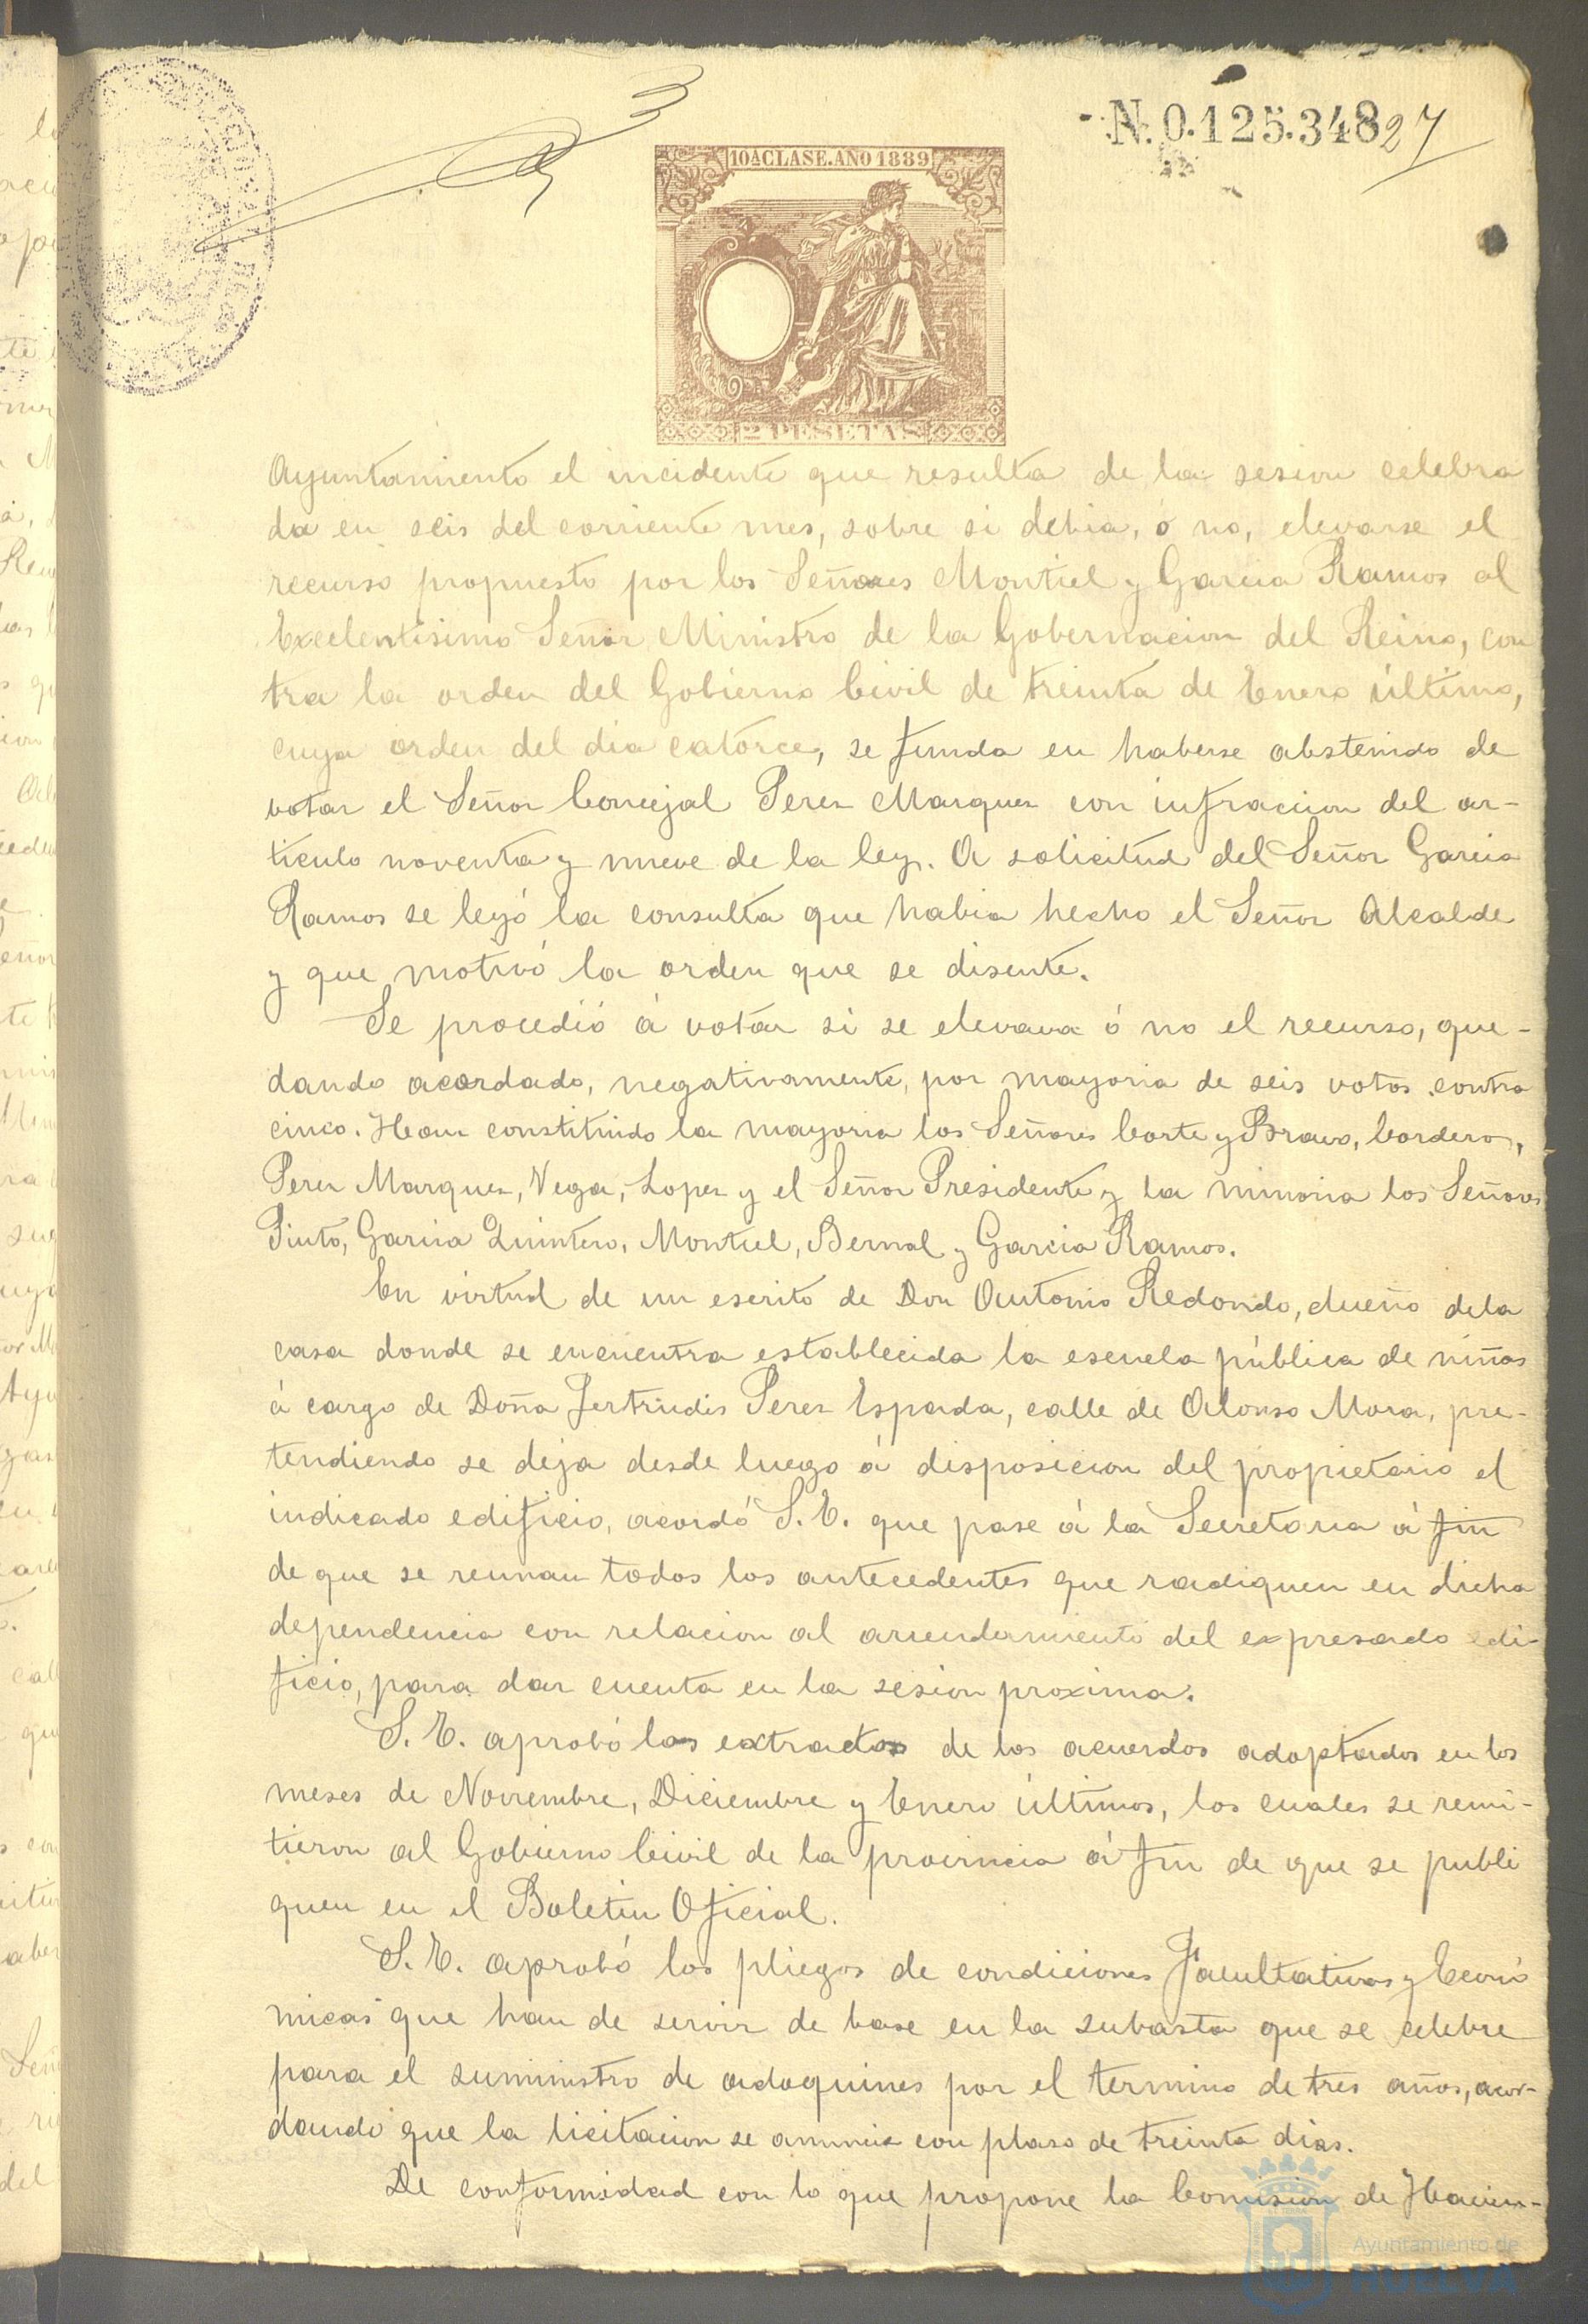 N. 0.125.348
27
10A CLASE. AÑO 1889
PESETAS
Ayuntamiento el incidente que resulta de la sesion celebra
da en seis del corriente mes, sobre si debia, ó no, elevarse el
recurso propuesto por los Señores Montiel y Garcia Ramos al
Excelentisimo Señor Ministro de la Gobernacion del Reino, con
tra la orden del Gobierno Civil de treinta de Enero último,
cuya orden del dia catorce, se funda en haberse abstenido de
votar el Señor Concejal Perez Marquez con infraccion del ar-
ticulo noventa y nueve de la ley. A solicitud del Señor Garcia
Ramos se leyó la consulta que habia hecho el Señor Alcalde
y que motivó la orden que se disente.
Se procedió á votar si se elevava ó no el recurso, que-
dando acordado, negativamente, por mayoria de seis votos contra
cinco. Han constituido la mayoria los Señores Corte y Bravo, Cordero,
Perez Marquez, Vega, Lopez y el Señor Presidente y la minoria los Señores
Pinto, Garcia Quintero, Montiel, Bernal y Garcia Ramos.
En virtud de un escrito de Don Antonio Redondo, dueño dela
casa donde se encuentra establecida la escuela pública de niños
á cargo de Doña Jertrudis Perez Espada, calle de Alonso Mora, pre-
tendiendo se deja desde luego á disposicion del propietario el
indicado edificio, acordó S. E. que pase á la Secretaria á fin
de que se reunan todos los antecedentes que radiquen en dicha
dependencia con relacion al arrendamiento del expresado edi-
ficio, para dar cuenta en la sesion proxima.
S. E. aprobó los extractos de los acuerdos adoptados en los
meses de Noviembre, Diciembre y Enero últimos, los cuales se remi-
tieron al Gobierno Civil de la provincia á fin de que se publi
quen en el Boletin Oficial.
S. E. aprobó los pliegos de condiciones Facultativas y Econó
micas que han de servir de base en la subasta que se celebre
para el suministro de adoquines por el termino de tres años, acor-
dando que la licitacion se anuncie con plaso de treinta dias.
De conformidad con lo que propone la Comision de Hacien-
Ayuntamiento de
HUELVA